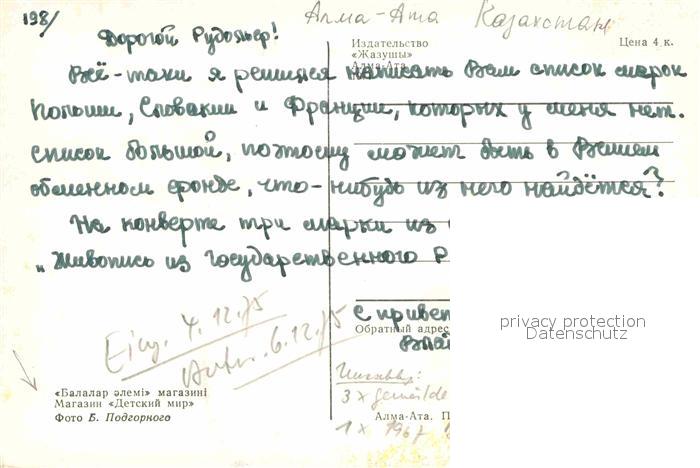 198/
Алма-Ата Казахстан
Дорогой Рудольф!
Издательство
«Жазушы»
Алма-Ата
Цена 4 к.
Всё-таки я решился написать Вам список марок
Польши, Словакии и Франции, которых у меня нет.
Список большой, поэтому может быть в Вашем
обменном фонде, что-нибудь из него найдётся?
На конверте три марки из
"Живопись из Государственного Р
С привет
Обратный адрес
privacy protection
Datenschutz
Eing. 4.12.75
Antw. 6.12.75
3 x gemälde
1 x 1967
«Балалар әлемі» магазині
Магазин «Детский мир»
Фото Б. Подгорного
Алма-Ата. П